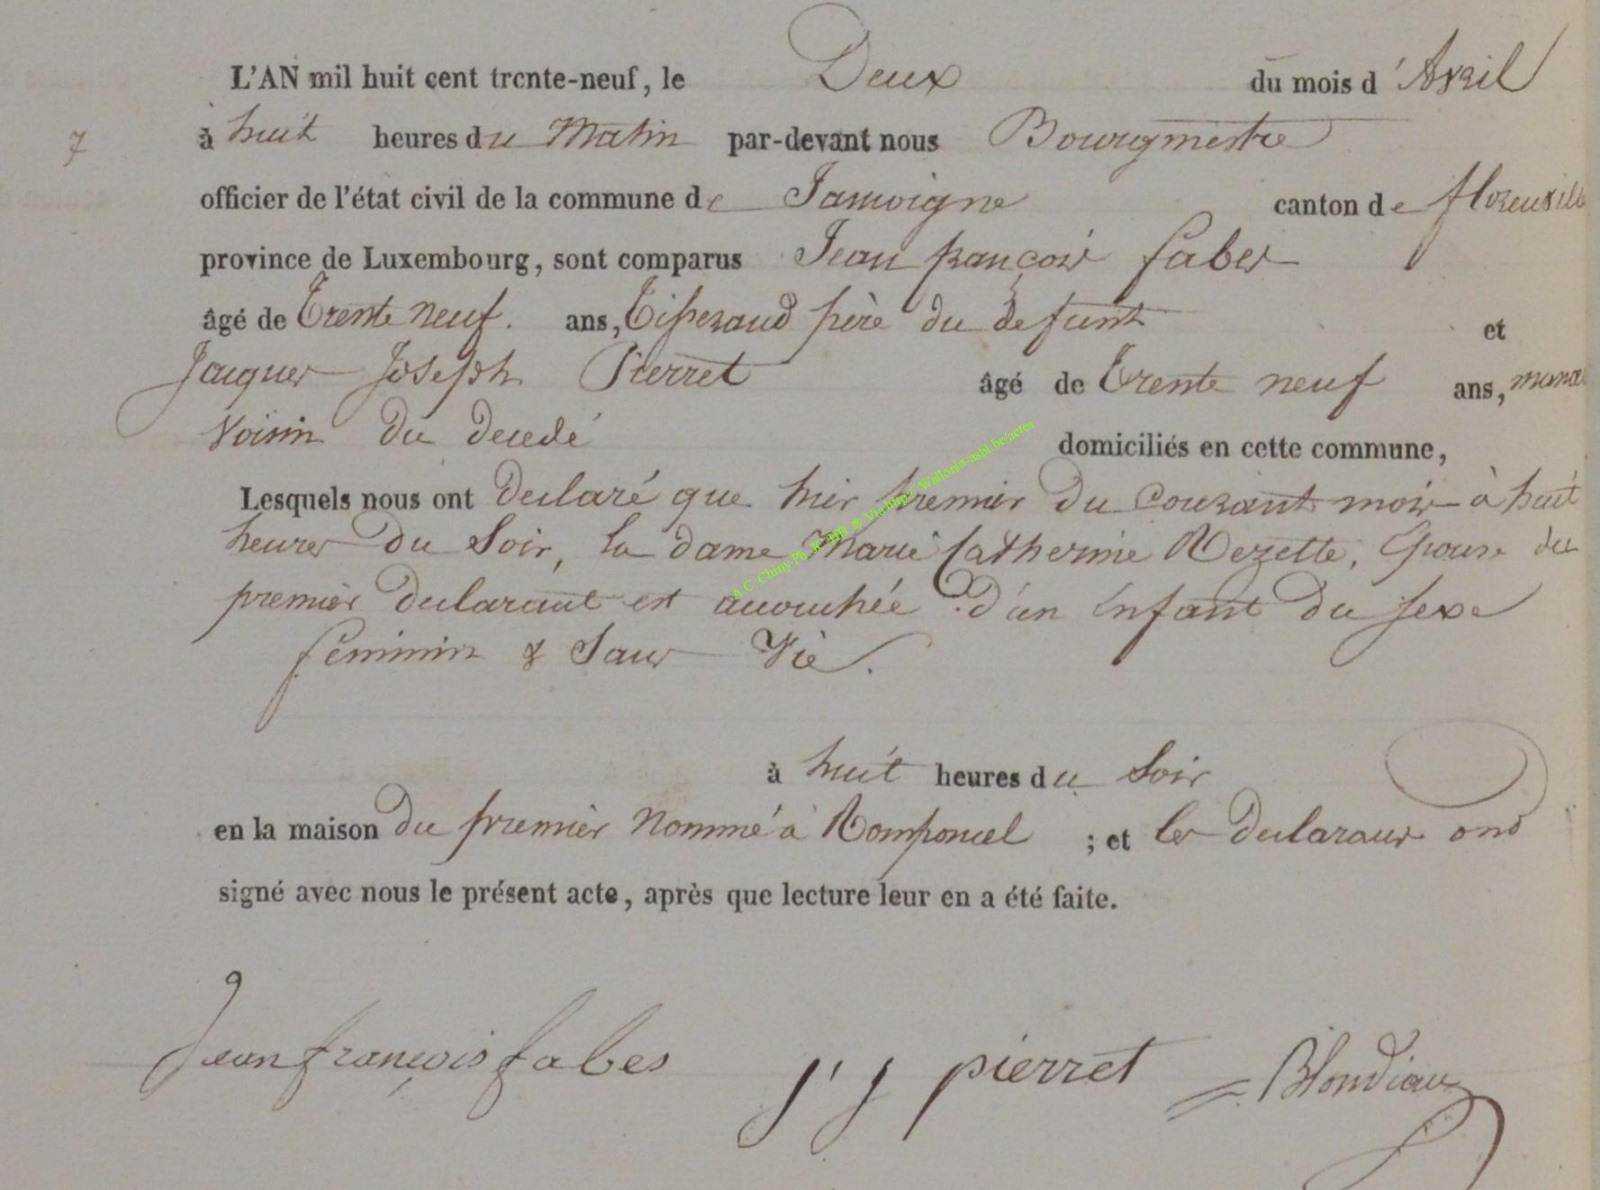 L'AN mil huit cent trente-neuf, le Deux du mois d'Avril
7 à huit heures du Matin par-devant nous Bourgmestre
officier de l'état civil de la commune de Jamoigne canton de florenville
province de Luxembourg, sont comparus Jean françois faber
âgé de Trente neuf. ans, Tisserand père du defunt et
Jacques Joseph Pierret âgé de Trente neuf ans,
Voisin du decedé domiciliés en cette commune,
Lesquels nous ont declaré que hier premier du courant mois à huit
heures du Soir, la dame Marie Catherine Rezette, Epouse du
premier declarant est accouchée d'un Enfant du sexe
feminin & Sans Vie.
à huit heures du Soir
en la maison du premier nommé à Romponcel ; et les declarans ont
signé avec nous le présent acte, après que lecture leur en a été faite.
Jean françois fabes J J pierret Blondiau